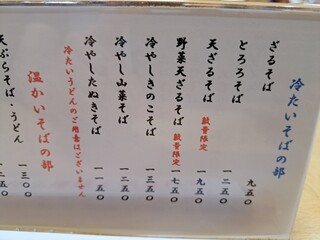 冷たいそばの部
ざるそば 九五〇
とろろそば 一二五〇
天ざるそば 数量限定 一九五〇
野菜天ざるそば 数量限定 一七五〇
冷やしきのこそば 一三五〇
冷やし山菜そば 一一五〇
冷やしたぬきそば 一一五〇
冷たいうどんのご用意はございません
温かいそばの部
天ぷらそば・うどん